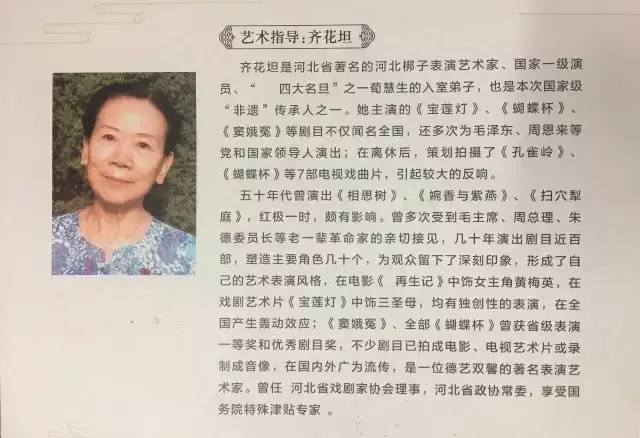 艺术指导:齐花坦
齐花坦是河北省著名的河北梆子表演艺术家、国家一级演
员、“ 四大名旦”之一荀慧生的入室弟子，也是本次国家级
“非遗”传承人之一。她主演的《宝莲灯》、《蝴蝶杯》、
《窦娥冤》等剧目不仅闻名全国，还多次为毛泽东、周恩来等
党和国家领导人演出；在离休后，策划拍摄了《孔雀岭》、
《蝴蝶杯》等7部电视戏曲片，引起较大的反响。
五十年代曾演出《相思树》、《婉香与紫燕》、《扫穴犁
庭》，红极一时，颇有影响。曾多次受到毛主席、周总理、朱
德委员长等老一辈革命家的亲切接见，几十年演出剧目近百
部，塑造主要角色几十个，为观众留下了深刻印象，形成了自
己的艺术表演风格，在电影《 再生记》中饰女主角黄梅英，在
戏剧艺术片《宝莲灯》中饰三圣母，均有独创性的表演，在全
国产生轰动效应；《窦娥冤》、全部《蝴蝶杯》曾获省级表演
一等奖和优秀剧目奖，不少剧目已拍成电影、电视艺术片或录
制成音像，在国内外广为流传，是一位德艺双馨的著名表演艺
术家。曾任 河北省戏剧家协会理事，河北省政协常委，享受国
务院特殊津贴专家 。